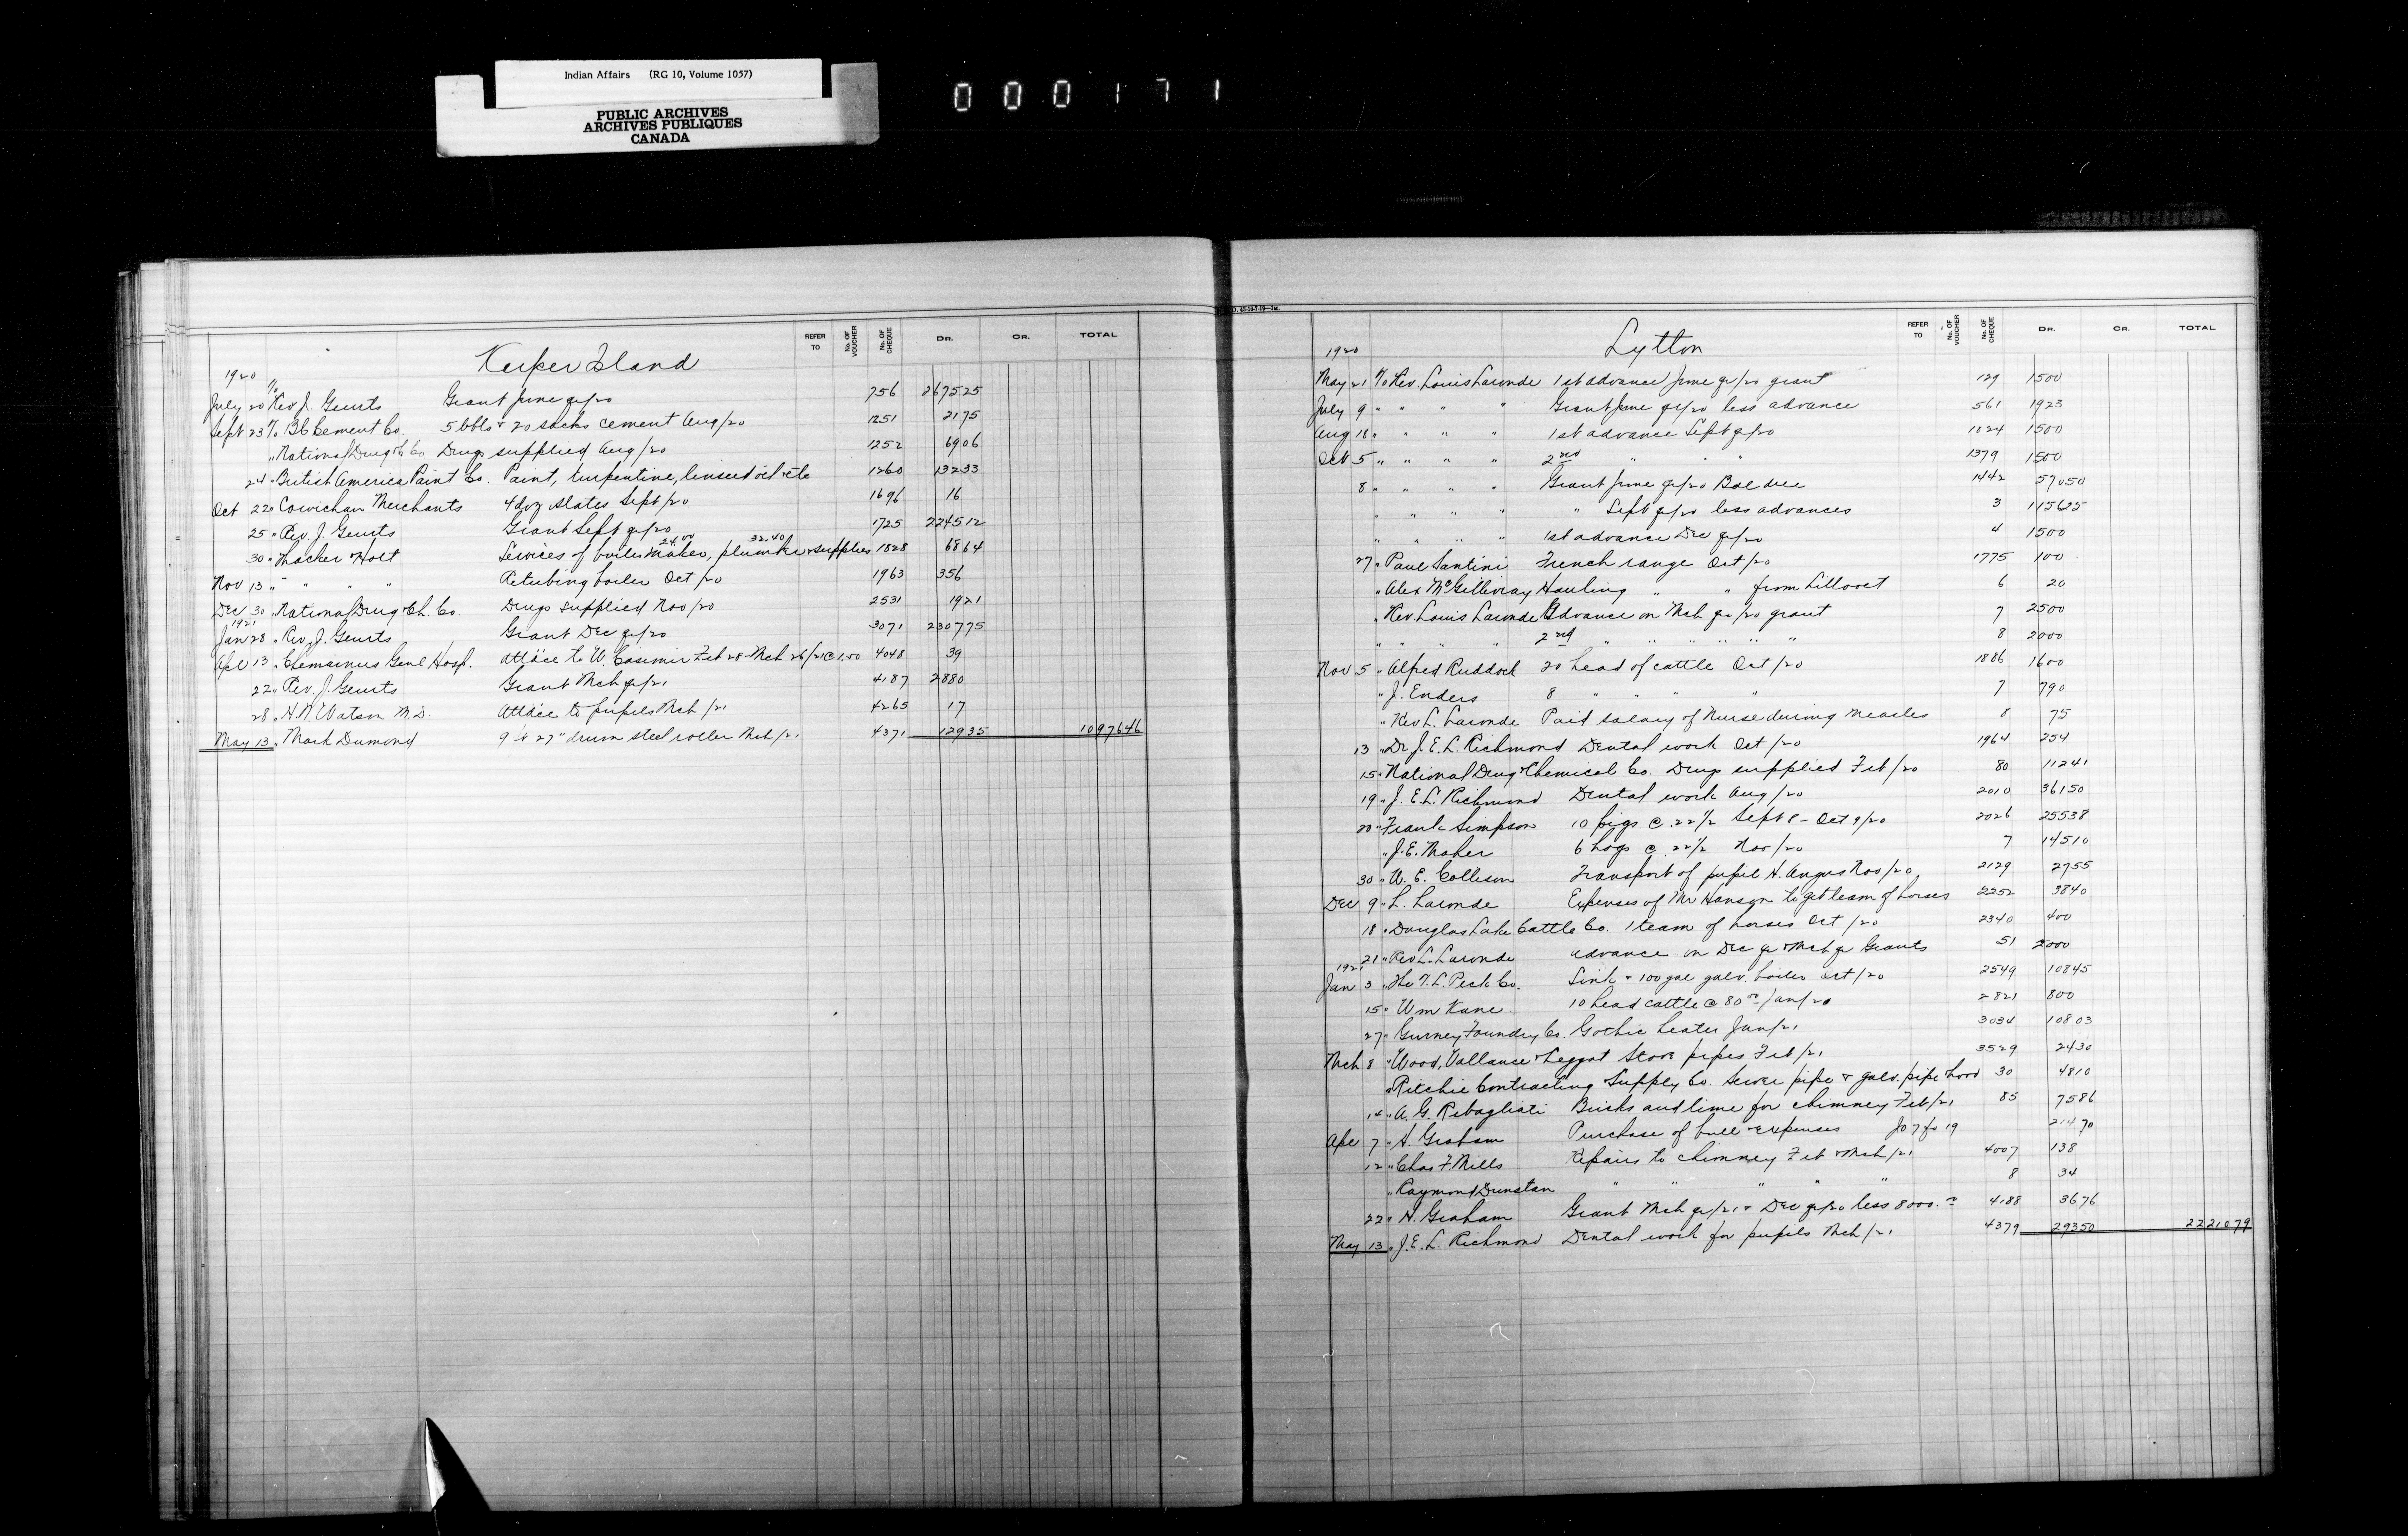 Indian Affairs (RG 10, Volume 1057)
PUBLIC ARCHIVES
ARCHIVES PUBLIQUES
CANADA
000171
REFER TO No. OF VOUCHER No. OF CHEQUE DR. CR. TOTAL
Kuper Island
1920
July 20 T/o Rev J. Geurts Grant June qr/20 756 2675 25
Sept 23 T/o BC Cement Co. 5 bbls + 20 sacks cement Aug/20 1251 21 75
" National Drug & C Co Drugs supplied Aug/20 1252 69 06
24 " British America Paint Co. Paint, turpentine, linseed oil etc 1260 132 33
Oct 22 " Cowichan Merchants 4 doz slates Sept/20 1696 16
25 " Rev. J. Geurts Grant Sept qr/20 1725 2245 12
30 " Thacker & Holt Services of boiler maker, 24.00 plumber 32.40 & supplies 1828 68 64
Nov 13 " " " " Retubing boiler Oct/20 1963 356
Dec 30 " National Drug & Ch. Co. Drugs supplied Nov/20 2531 19 21
1921
Jan 28 " Rev. J. Geurts Grant Dec qr/20 3071 2307 75
Apl 13 " Chemainus Genl Hosp. Att'dce to W. Casimir Feb 28 - Mch 26/21 @ 1.50 4048 39
22 " Rev. J. Geurts Grant Mch qr/21 4187 2880
28 " H.N. Watson M.D. Att'dce to pupils Mch/21 4265 17
May 13 " Mark Dumond 9 x 27" drum steel roller Mch/21 4371 129 35 10976 46
REFER TO No. OF VOUCHER No. OF CHEQUE DR. CR. TOTAL
Lytton
1920
May 21 T/o Rev. Louis Laronde 1st advance June qr/20 grant 129 1500
July 9 " " " " Grant June qr/20 less advance 561 1923
Aug 18 " " " " 1st advance Sept qr/20 1024 1500
Oct 5 " " " " 2nd " " " 1379 1500
8 " " " " Grant June qr/20 Bal due 1442 570 50
" " " " " Sept qr/20 less advances 3 1156 25
" " " " 1st advance Dec qr/20 4 1500
27 " Paul Santini French range Oct/20 1775 100
" Alex McGillivray Hauling " " from Lillooet 6 20
" Rev. Louis Laronde Advance on Mch qr/20 grant 7 2500
" " " 2nd " " " " " 8 2000
Nov 5 " Alfred Ruddock 20 head of cattle Oct/20 1886 1600
" J. Enders 8 " " " " 7 790
" Rev L. Laronde Paid salary of Nurse during measles 8 75
13 " Dr J. E. L. Richmond Dental work Oct/20 1964 254
15 " National Drug & Chemical Co. Drugs supplied Feb/20 80 112 41
19 " J. E. L. Richmond Dental work Aug/20 2010 361 50
20 " Frank Simpson 10 pigs @ .22½ Sept 8 - Oct 9/20 2026 255 38
" J. E. Maher 6 hogs @ .22½ Nov/20 7 145 10
30 " W. E. Collison Transport of pupil H. Angus Nov/20 2129 27 55
Dec 9 " L. Laronde Expenses of Mr Hanson to get team of horses 2252 38 40
18 " Douglas Lake Cattle Co. 1 team of horses Oct/20 2340 400
21 " Rev L. Laronde advance on Dec qr & Mch qr Grants 51 2000
1921
Jan 3 " The T. L. Peck Co. Sink + 100 gal galv. boiler Oct/20 2549 108 45
15 " Wm Kane 10 head cattle @ 80.00 Jan/20 2821 800
27 " Gurney Foundry Co. Gothic heater Jan/21 3034 108 03
Mch 8 " Wood, Vallance & Leggat Stove pipes Feb/21 3529 24 30
" Ritchie Contracting & Supply Co. Sewer pipe + galv. pipe & hood 30 48 10
14 " A. G. Rebagliati Bricks and lime for chimney Feb/21 85 75 86
Apl 7 " H. Graham Purchase of bull & expenses Jo 7 fo 19 214 70
12 " Chas F. Mills Repairs to chimney Feb & Mch/21 4007 138
" Raymond Dunstan " " " " " 8 34
22 " H. Graham Grant Mch qr/21 + Dec qr/20 less 8000.00 4188 36 76
May 13 " J. E. L. Richmond Dental work for pupils Mch/21 4379 293 50 22210 79